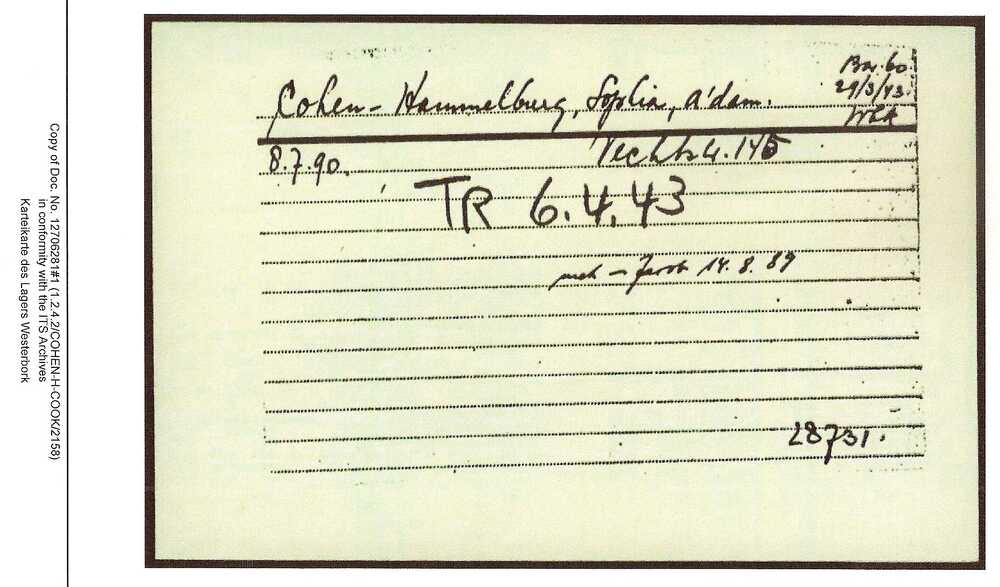 Copy of Doc. No. 12706281#1 (1.2.4.2/COHEN-H-COOK/2158)
in conformity with the ITS Archives
Karteikarte des Lagers Westerbork
Bar. 60
29/3/43.
Cohen-Hammelburg, Sophia, A'dam.
8.7.90. Vechtstr. 145
TR 6.4.43
Jacob 14.8.89
28731.